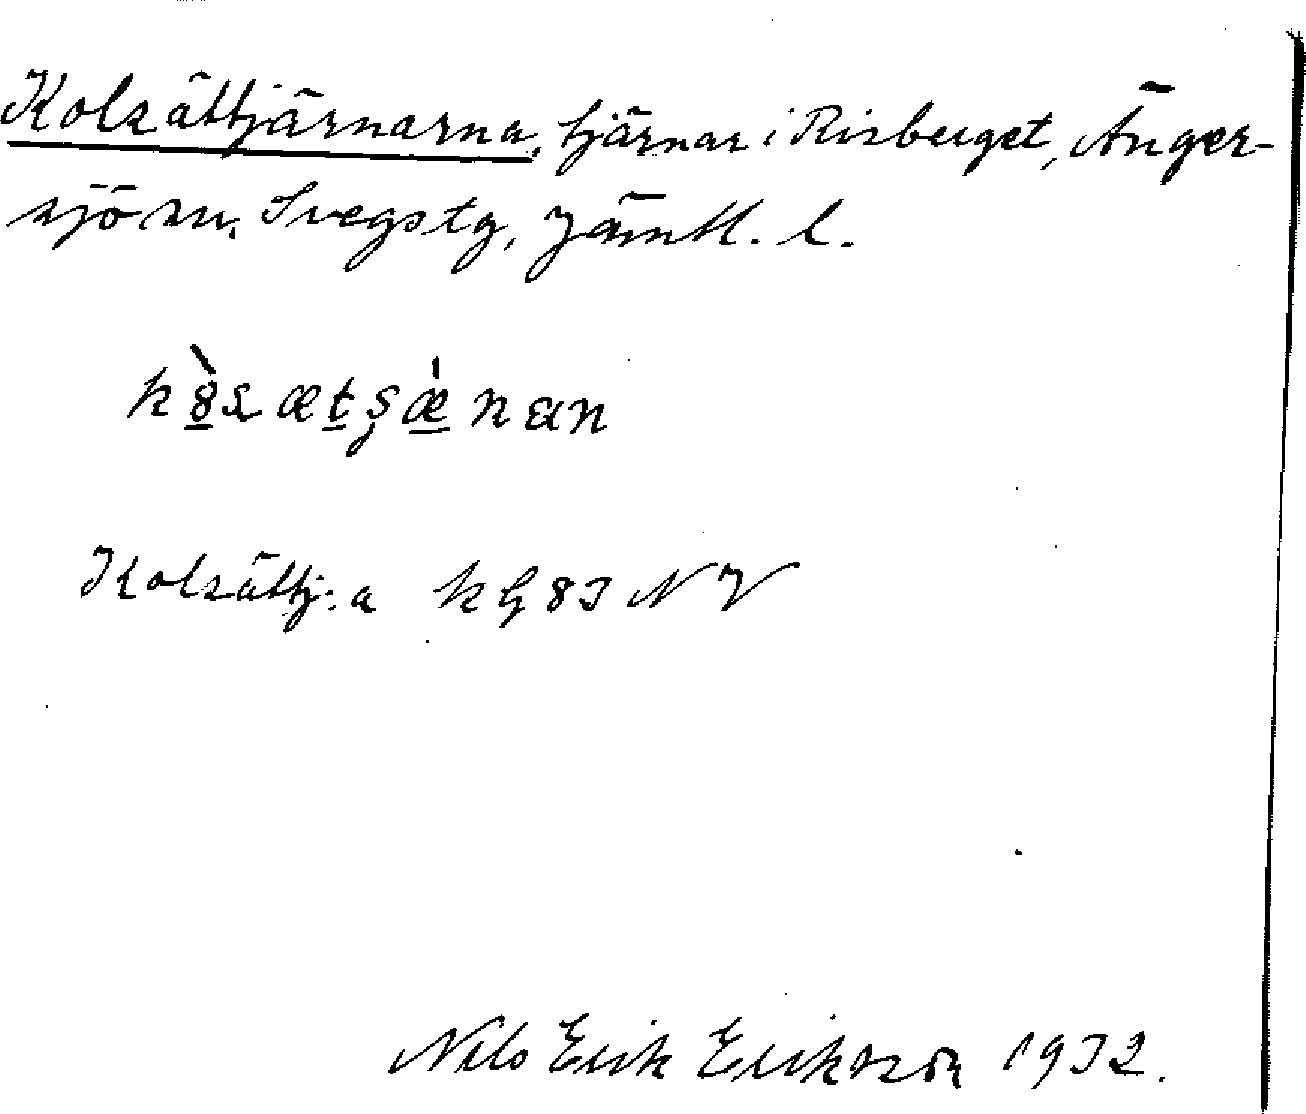 Kolsättjärnarna, tjärnar i Risberget, Änger-
sjö sn. Svegs tg, Jämtl. l.
k8̀sætʂæ̍nan
Kolsättj:a kG83 NV
Nils Erik Erikson 1932.